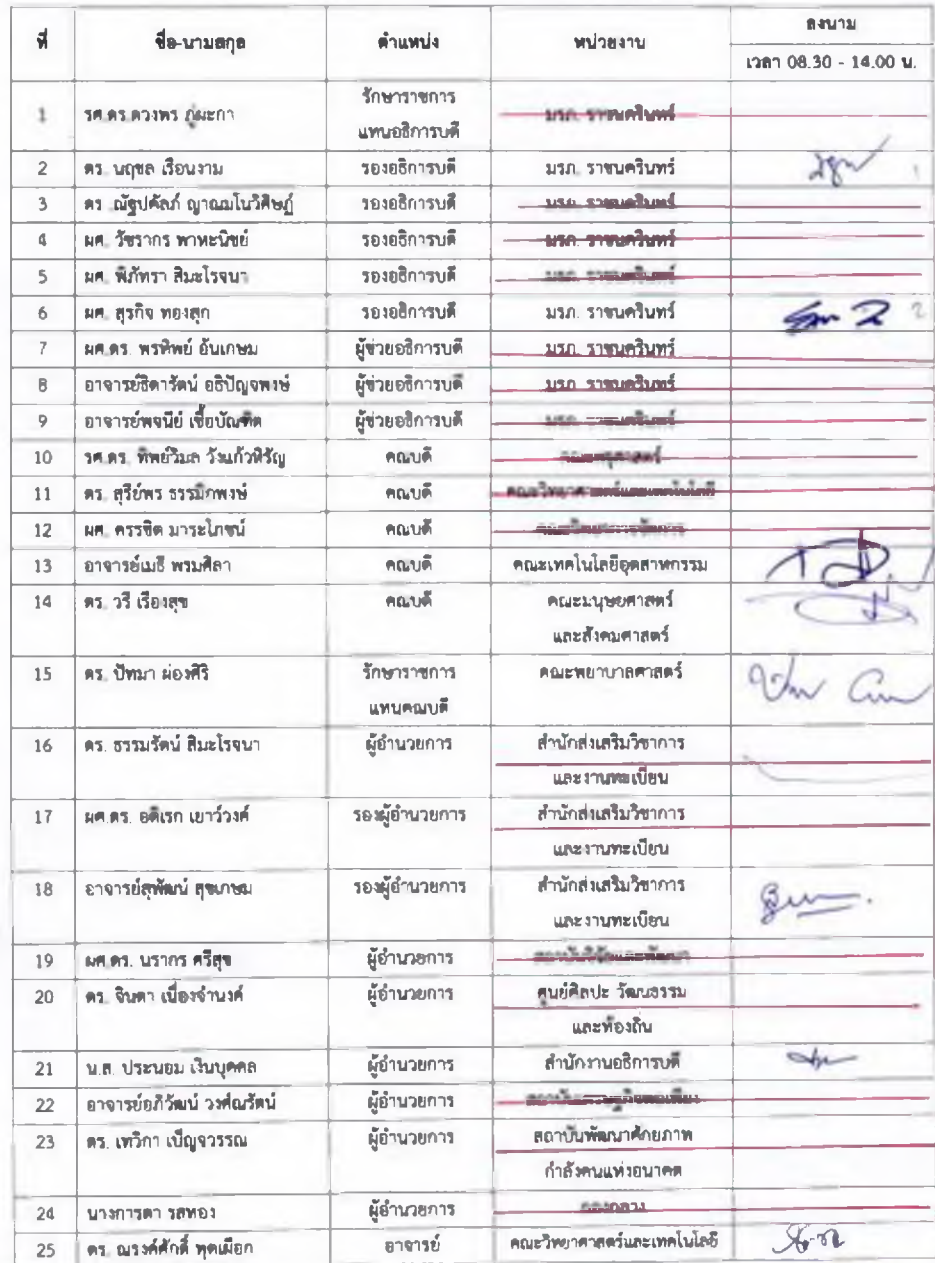 ที่ ชื่อ-นามสกุล ตำแหน่ง หน่วยงาน ลงนาม
เวลา 08.30 - 14.00 น.
1 รศ.ดร.ดวงพร ภู่ผะกา รักษาราชการ มรภ. ราชนครินทร์
แทนอธิการบดี
2 ดร. นฤชล เรือนงาม รองอธิการบดี มรภ. ราชนครินทร์
3 ดร. ณัฐปคัลภ์ ญาณมโนวิศิษฏ์ รองอธิการบดี มรภ. ราชนครินทร์
4 ผศ. วัชรากร พาหะนิชย์ รองอธิการบดี มรภ. ราชนครินทร์
5 ผศ. พิภัทรา สิมะโรจนา รองอธิการบดี มรภ. ราชนครินทร์
6 ผศ. สุรกิจ ทองสุก รองอธิการบดี มรภ. ราชนครินทร์ 2
7 ผศ.ดร. พรทิพย์ อ้นเกษม ผู้ช่วยอธิการบดี มรภ. ราชนครินทร์
8 อาจารย์ธิดารัตน์ อธิปัญจพงษ์ ผู้ช่วยอธิการบดี มรภ. ราชนครินทร์
9 อาจารย์พจนีย์ เชื้อบัณฑิต ผู้ช่วยอธิการบดี มรภ. ราชนครินทร์
10 รศ.ดร. ทิพย์วิมล วังแก้วหิรัญ คณบดี คณะครุศาสตร์
11 ดร. สุรีย์พร ธรรมิกพงษ์ คณบดี คณะวิทยาศาสตร์และเทคโนโลยี
12 ผศ. ครรชิต มาระโภชน์ คณบดี คณะวิทยาการจัดการ
13 อาจารย์เมธี พรมศิลา คณบดี คณะเทคโนโลยีอุตสาหกรรม
14 ดร. วรี เรืองสุข คณบดี คณะมนุษยศาสตร์
และสังคมศาสตร์
15 ดร. ปัทมา ผ่องศิริ รักษาราชการ คณะพยาบาลศาสตร์
แทนคณบดี
16 ดร. ธรรมรัตน์ สิมะโรจนา ผู้อำนวยการ สำนักส่งเสริมวิชาการ
และงานทะเบียน
17 ผศ.ดร. อดิเรก เยาว์วงค์ รองผู้อำนวยการ สำนักส่งเสริมวิชาการ
และงานทะเบียน
18 อาจารย์สุพัฒน์ สุขเกษม รองผู้อำนวยการ สำนักส่งเสริมวิชาการ
และงานทะเบียน
19 ผศ.ดร. นรากร ศรีสุข ผู้อำนวยการ สถาบันวิจัยและพัฒนา
20 ดร. จินดา เนื่องจำนงค์ ผู้อำนวยการ ศูนย์ศิลปะ วัฒนธรรม
และท้องถิ่น
21 น.ส. ประนอม เงินบุคคล ผู้อำนวยการ สำนักงานอธิการบดี
22 อาจารย์อภิวัฒน์ วงศ์ณรัตน์ ผู้อำนวยการ สถาบันเศรษฐกิจพอเพียง
23 ดร. เทวิกา เบ็ญจวรรณ ผู้อำนวยการ สถาบันพัฒนาศักยภาพ
กำลังคนแห่งอนาคต
24 นางการดา รสทอง ผู้อำนวยการ กองกลาง
25 ดร. ณรงค์ศักดิ์ พุดเผือก อาจารย์ คณะวิทยาศาสตร์และเทคโนโลยี